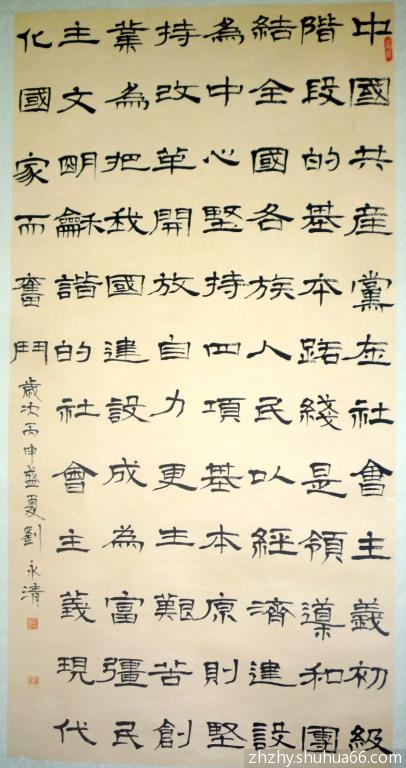 中國共産黨在社會主義初級
階段的基本路綫是領導和團
結全國各族人民以經濟建設
為中心堅持四項基本原則堅
持改革開放自力更生艱苦創
業為把我國建設成為富彊民
主文明龢諧的社會主義現代
化國家而奮鬥
歲次丙申盛夏劉永清
zhzhy.shuhua66.com